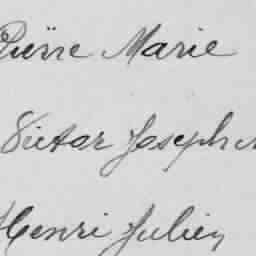 Pierre Marie
Victor Joseph
Henri Julien